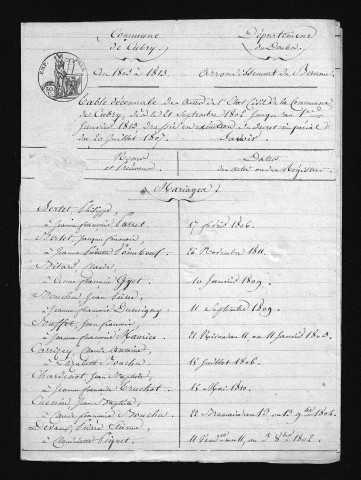 Commune
de Cubry
Département
du Doubs
An 1803 à 1813.
Arrondissement de Baume
Table décennale des actes de l'Etat Civil de la Commune
de Cubry, du 21 Septembre 1802 jusqu'au 1er
Janvier 1813 dressée en exécution du décret impérial
du 20 Juillet 1807. Savoir
Noms
et Prénoms
Dates
des actes
Registres
Mariages
Bertet, Philippe,
à Jeanne françoise Parret 17 février 1806.
Bertet Jacques
à Jeanne 26 Novembre 1811.
Claude
à françoise Guyot 10 Janvier 1809.
Bouchu Jean Pierre
à Jeanne françoise 11 Septembre 1809.
Bouffet, Jean françois
à Jeanne françoise Maurice 21 Nivose an 11 ou 11 Janvier 1803.
Claude Antoine,
à Elizabeth Bouchu 15 Juillet 1806.
Jean Baptiste,
à Jeanne françoise Truchot 15 Mai 1810.
Cuenin Jean Baptiste
à Jeanne françoise Bouchu 22 Brumaire an 13 ou 13 9bre 1804.
Devaux, Pierre Etienne
à Claudette Piquet 11 an 11, ou 3 8bre 1802.